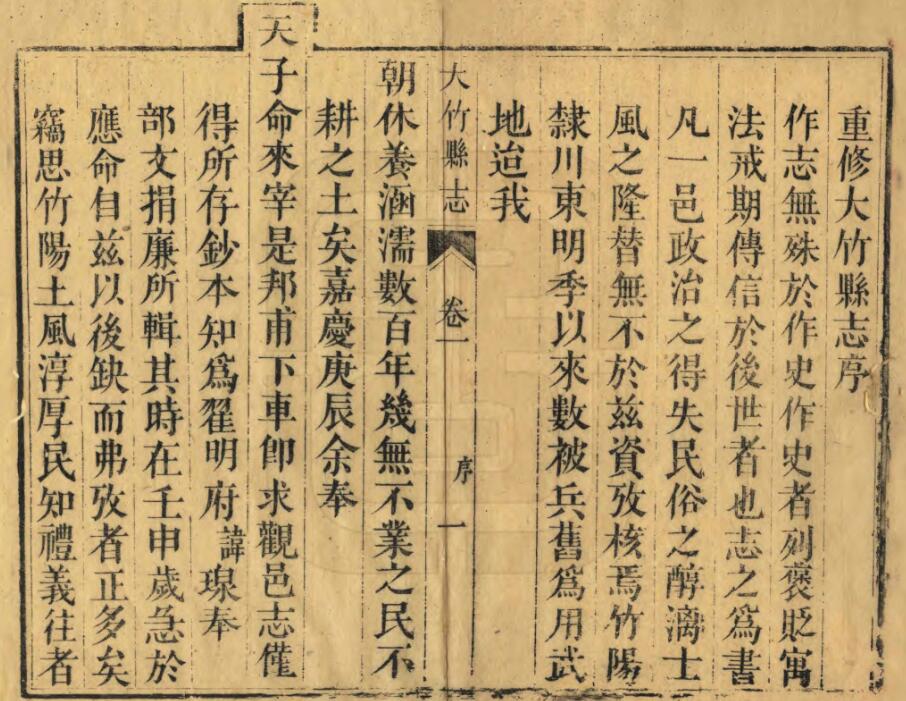 重修大竹縣志序
作志無殊於作史作史者列褒貶寓
法戒期傳信於後世者也志之為書
凡一邑政治之得失民俗之醇漓士
風之隆替無不於茲資攷核焉竹陽
隸川東明季以來數被兵舊為用武
地迨我
大竹縣志 卷一 序 一
朝休養涵濡數百年幾無不業之民不
耕之土矣嘉慶庚辰余奉
天子命來宰是邦甫下車卽求觀邑志僅
得所存鈔本知爲翟明府諱瑔奉
部文捐廉所輯其時在壬申歲急於
應命自茲以後缺而弗攷者正多矣
竊思竹陽土風淳厚民知禮義往者